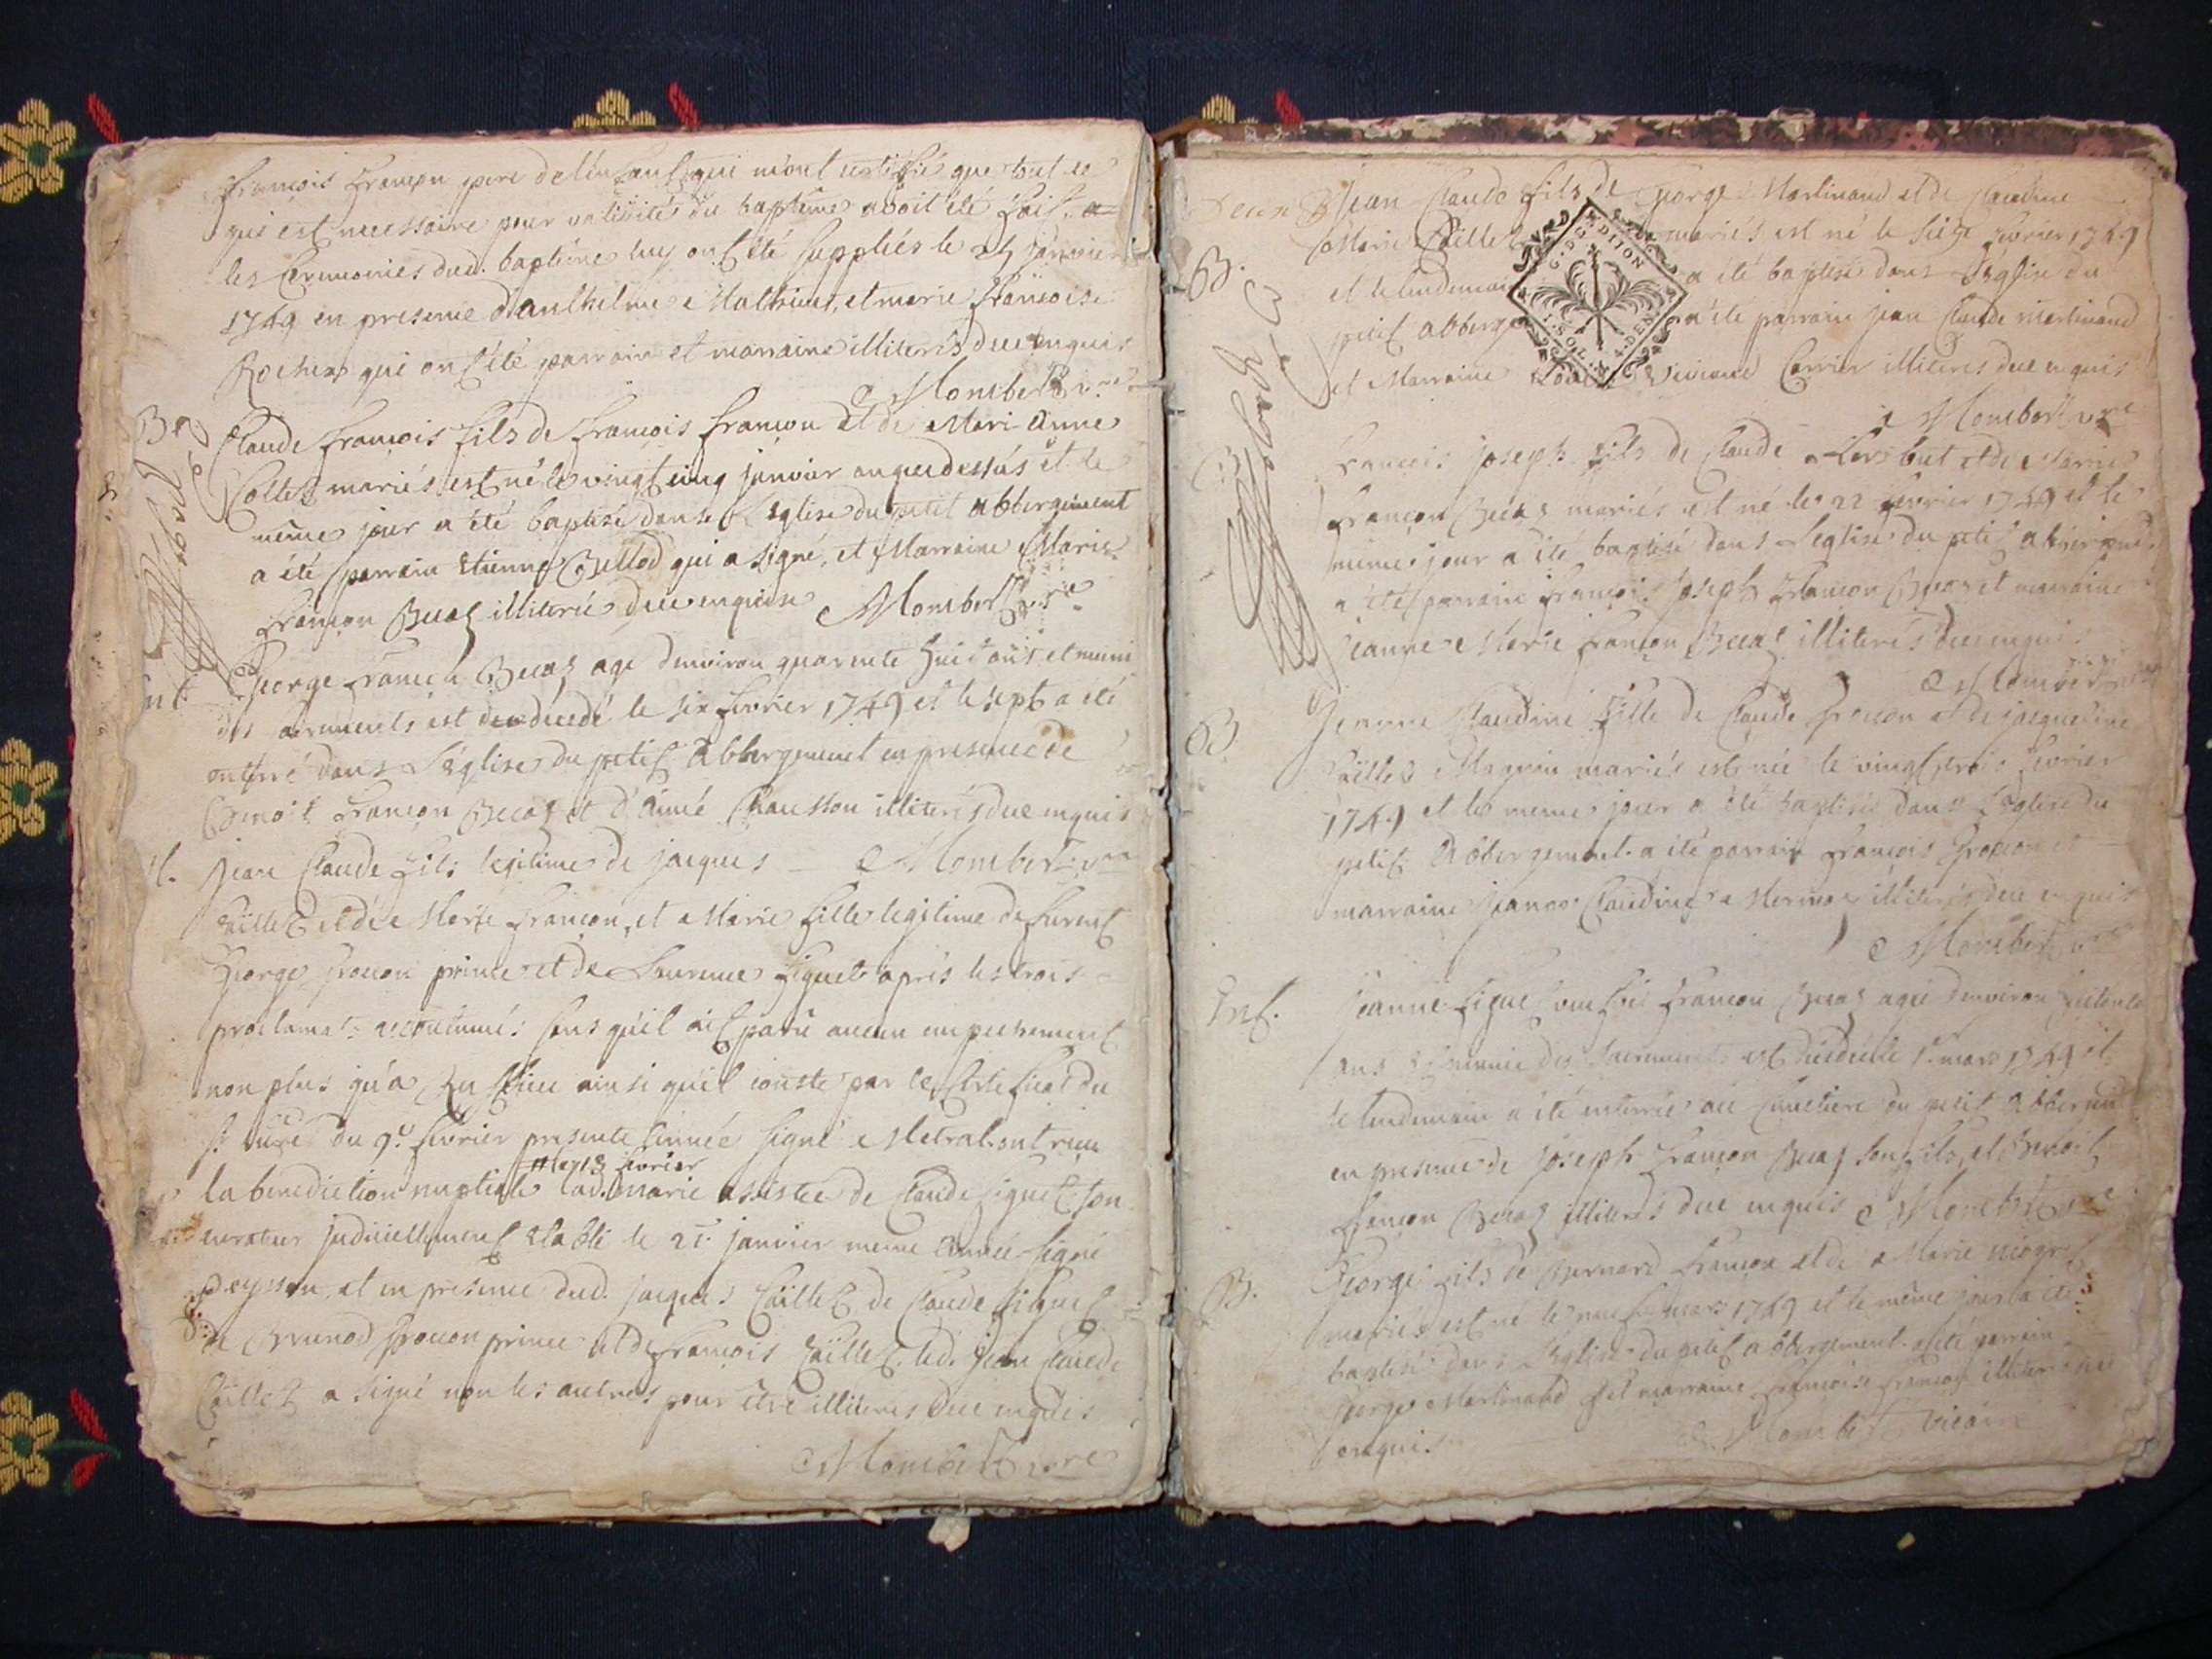 françois françon pere de l'enfant qui m'ont certifié que tout ce
qui est necessaire pour validité du baptême avoit été fait. a
les Ceremonies dud. baptême luy ont été suppliés le 25 janvier
1749 en presence d'anthelme Mathieu, et marie françoise
Rochex qui ont été parrain et marraine illiterés due enquis
Mombert vre
B
Claude françois fils de françois françon et de Mari Anne
Collet mariés est né le vingt cinq janvier an que dessus et le
même jour a été baptisé dans L'Eglise du petit abbergement
a été parrain Etienne Bellod qui a signé, et Marraine Marie
françon Beiaz illiterée due enquise Mombert vre
Ent.
George françon Beiaz agé d'environ quarente huit ans et muni
des sacrements est decedé le six fevrier 1749 et le sept a été
enterré dans L'église du petit Abbergement en presence de
Benoit françon Beiaz et d'Aimé Chausson illiterés due enquis
M.
jean Claude fils legitime de jacques Mombert vre
Caillet et de Marie françon, et Marie fille legitime de furent
George prince et de Laurence Figuet après les trois
proclamat: accoutumés sans qu'il ait paru aucun empechement
non plus qu'a lieu ainsi qu'il conste par le Certificat du
sr. curé du 9e fevrier presente année signé Metral ont reçu
le 18 fevrier
la benediction nuptiale lad. marie assistée de Claude figuet son
curateur judiciellement etabli le 21 janvier meme année signé
et en presence dud. jacques Caillet de Claude figuet
de Brunod prince et de françois Caillet led. jean Claude
Caillet a signé non les autres pour être illiteres due enquis
Mombert vre
jean Claude fils de George Martinand et de Claudine
B.
Marie Caillet mariés est né le seize fevrier 1749
G. DE DIJON
I. SOL. 4. DEN.
et le lendemain a été baptisé dans L'église du
petit abberge a été parrain jean Claude Martinand
et Marraine Carrier illiteres due enquis
Mombert vre
B
françois joseph fils de Claude et de Marie
françon Beiaz mariés est né le 22 fevrier 1749 et le
même jour a été baptisé dans L'eglise du petit abbergement
a été parrain françois joseph françon Beiaz et marraine
jeanne Marie françon Beiaz illiterés due enquis
Mombert vre
B.
jeanne Claudine fille de Claude et de jacqueline
Caillet Magnin mariés est née le vingt trois fevrier
1749 et le meme jour a été baptisée dans L'eglise du
petit Abbergement a été parrain françois et
marraine jeanne Claudine illiterés due enquis
Mombert vre
Ent.
jeanne figuet françon Beiaz agée d'environ
ans et munie des sacrements est decedée le 1er mars 1749 et
le lendemain a été enterrée au cimetiere du petit Abbergement
en presence de joseph françon Beiaz son fils, et Benoit
françon Beiaz illiterés due enquis Mombert vre
B.
George fils de Bernard françon et de Marie
mariés est né le neuf mars 1749 et le même jour a été
baptisé dans L'eglise du petit abbergement a été parrain
George Martinand et marraine françoise françon illiterés due
enquis
Mombert vicaire